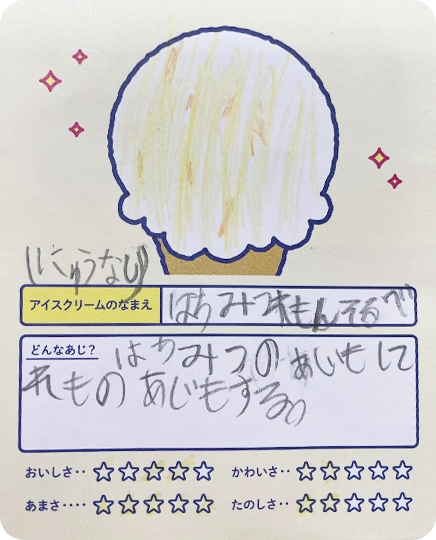 (にゅうなし)
アイスクリームのなまえ はちみつれもんそるべ
どんなあじ？
はちみつのあじもして
れものあじもする。
おいしさ‥ ☆☆☆☆☆ かわいさ‥ ☆☆☆☆☆
あまさ‥‥ ☆☆☆☆☆ たのしさ‥ ☆☆☆☆☆